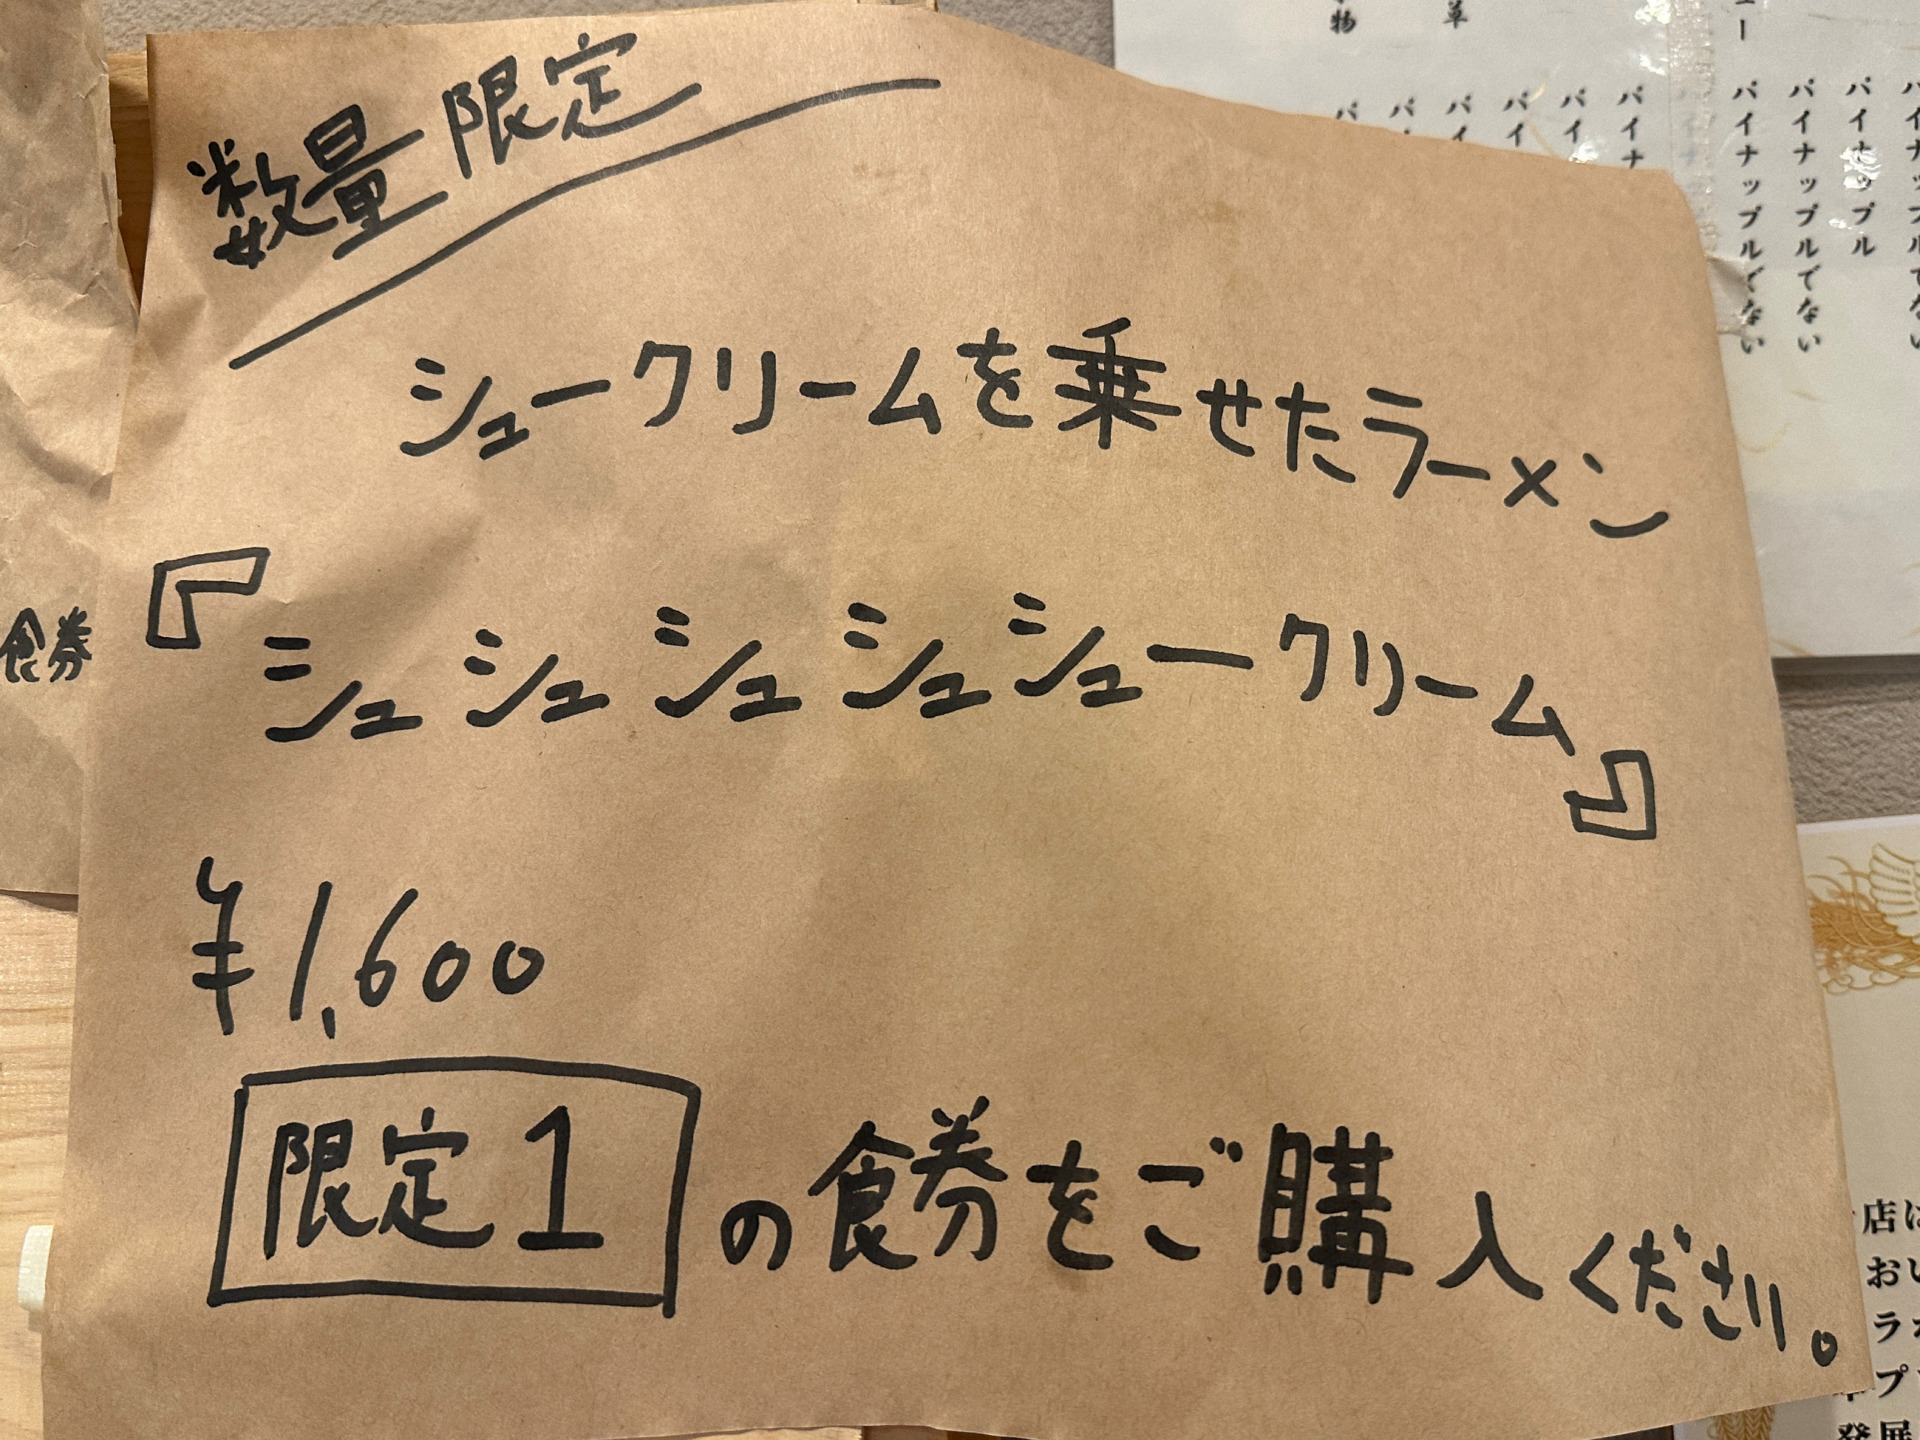 数量限定
シュークリームを乗せたラーメン
『シュシュシュシュシュークリーム』
¥1,600
限定1の食券をご購入ください。
食券
パイナップルでない
パイナップルでない
パイナップル